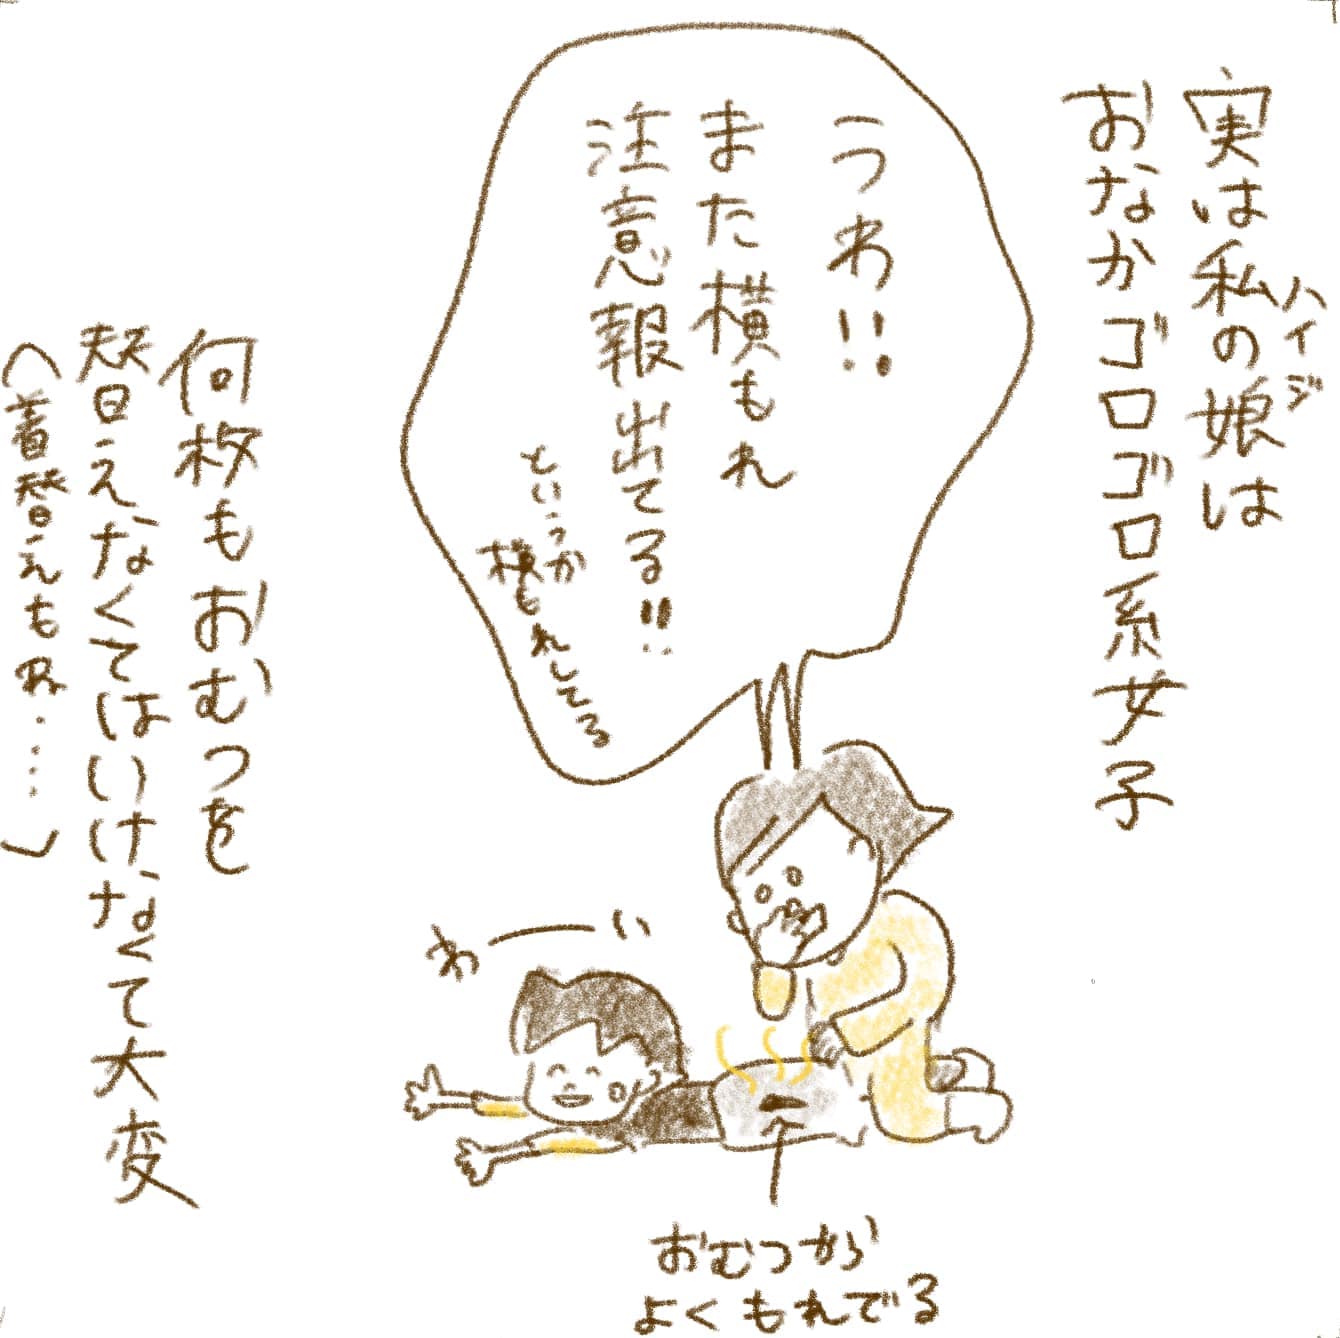 実は私の娘は
ハイジ
おなかゴロゴロ系女子
うわ!!
また横もれ
注意報出てる!!
というか
横もれしてる
わーい
おむつから
よくもれでる
何枚もおむつを
替えなくてはいけなくて大変
(着替えもね……)